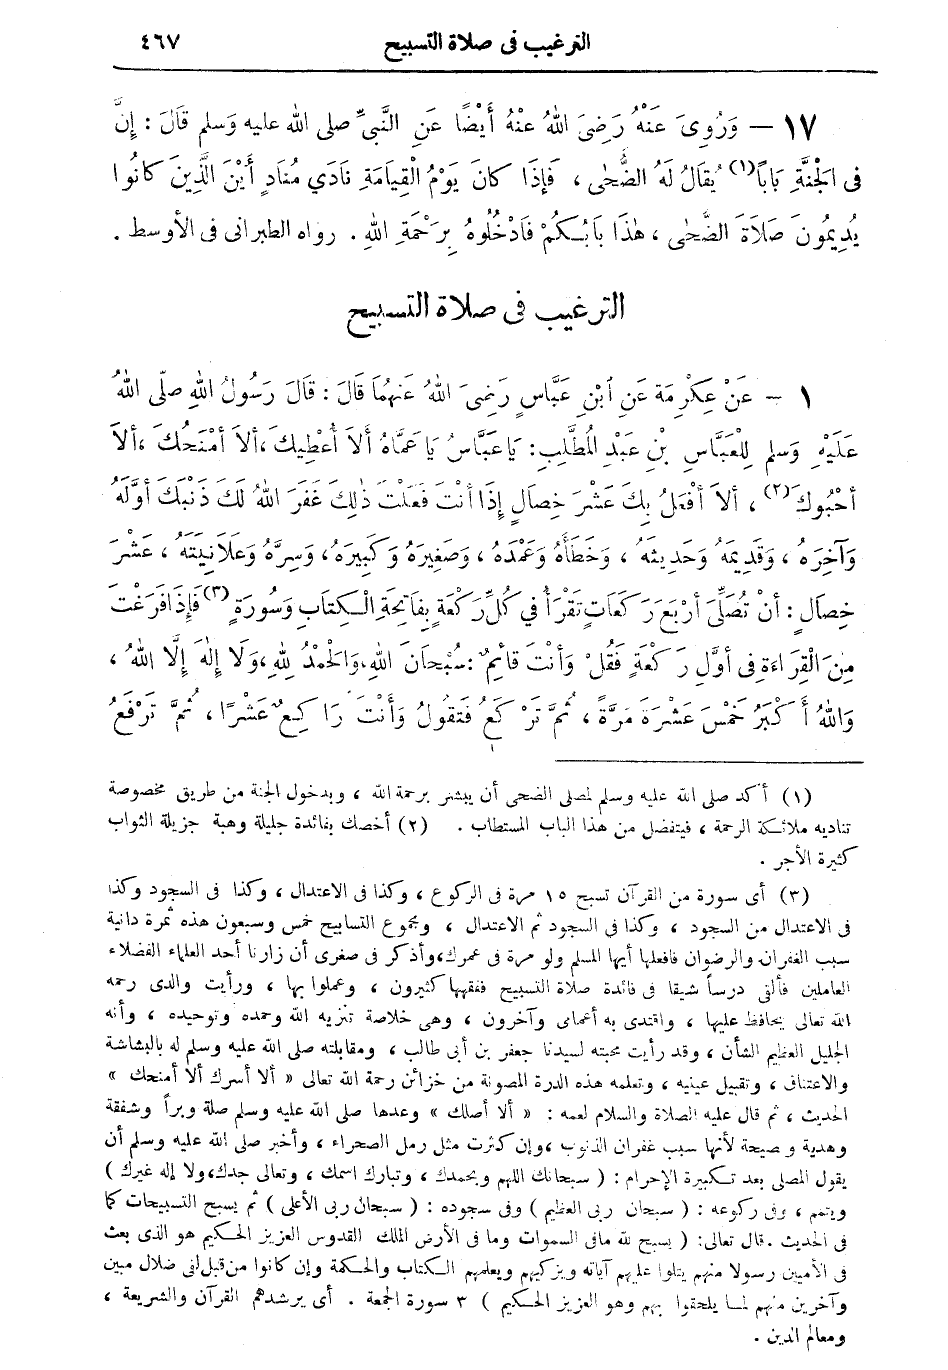 الترغيب فى صلاة التسبيح ٤٦٧
١٧ — وَرُوِىَ عَنْهُ رَضِىَ اللهُ عَنْهُ أَيْضًا عَنِ النَّبِىِّ صلى الله عليه وَسلم قَالَ : إِنَّ
فِى الْجَنَّةِ بَابًا (١) يُقَالُ لَهُ الضُّحٰى ، فَإِذَا كَانَ يَوْمُ الْقِيَامَةِ نَادَي مُنَادٍ أَيْنَ الَّذِينَ كَانُوا
يُدِيمُونَ صَلَاةَ الضُّحٰى ، هٰذَا بَابُكُمْ فَادْخُلُوهُ بِرَحْمَةِ اللهِ . رواه الطبرانى فى الأوسط .
الترغيب فى صلاة التسبيح
١ — عَنْ عِكْرِمَةَ عَنِ ابْنِ عَبَّاسٍ رَضِىَ اللهُ عَنْهُمَا قَالَ : قَالَ رَسُولُ اللهِ صَلَّى اللهُ
عَلَيْهِ وَسلم لِلْعَبَّاسِ بْنِ عَبْدِ الْمُطَّلِبِ : يَا عَبَّاسُ يَا عَمَّاهُ أَلَا أُعْطِيكَ ، أَلَا أَمْنَحُكَ ، أَلَا
أَحْبُوكَ (٢) ، أَلَا أَفْعَلُ بِكَ عَشْرَ خِصَالٍ إِذَا أَنْتَ فَعَلْتَ ذٰلِكَ غَفَرَ اللهُ لَكَ ذَنْبَكَ أَوَّلَهُ
وَآخِرَهُ ، وَقَدِيمَهُ وَحَدِيثَهُ ، وَخَطَأَهُ وَعَمْدَهُ ، وَصَغِيرَهُ وَكَبِيرَهُ ، وَسِرَّهُ وَعَلَانِيَتَهُ ، عَشْرَ
خِصَالٍ : أَنْ تُصَلِّىَ أَرْبَعَ رَكَعَاتٍ تَقْرَأُ فِي كُلِّ رَكْعَةٍ بِفَاتِحَةِ الْكِتَابِ وَسُورَةٍ (٣) فَإِذَا فَرَغْتَ
مِنَ الْقِرَاءَةِ فِى أَوَّلِ رَكْعَةٍ فَقُلْ وَأَنْتَ قَائِمٌ : سُبْحَانَ اللهِ ، وَالْحَمْدُ لِلهِ ، وَلَا إِلٰهَ إِلَّا اللهُ ،
وَاللهُ أَكْبَرُ خَمْسَ عَشْرَةَ مَرَّةً ، ثُمَّ تَرْكَعُ فَتَقُولُ وَأَنْتَ رَاكِعٌ عَشْرًا ، ثُمَّ تَرْفَعُ
(١) أكد صلى الله عليه وسلم لمصلى الضحى أن يبشر برحمة الله ، وبدخول الجنة من طريق مخصوصة
تناديه ملائكة الرحمة ، فيتفضل من هذا الباب المستطاب . (٢) أخصك بفائدة جليلة وهبة جزيلة الثواب
كثيرة الأجر .
(٣) أى سورة من القرآن تسبح ١٥ مرة فى الركوع ، وكذا فى الاعتدال ، وكذا فى السجود وكذا
فى الاعتدال من السجود ، وكذا فى السجود ثم الاعتدال ، ومجموع التسابيح خمس وسبعون هذه ثمرة دانية
سبب الغفران والرضوان فافعلها أيها المسلم ولو مرة فى عمرك، وأذكر فى صغرى أن زارنا أحد العلماء الفضلاء
العاملين فألقى درساً شيقا فى فائدة صلاة التسبيح ففقهها كثيرون ، وعملوا بها ، ورأيت والدى رحمه
الله تعالى يحافظ عليها ، واقتدى به أعمامى وآخرون ، وهى خلاصة تنزيه الله وحمده وتوحيده ، وأنه
الجليل العظيم الشأن ، وقد رأيت محبته لسيدنا جعفر بن أبى طالب ، ومقابلته صلى الله عليه وسلم له بالبشاشة
والاعتناق ، وتقبيل عينيه ، وتعلمه هذه الدرة المصونة من خزائن رحمة الله تعالى « ألا أسرك ألا أمنحك »
الحديث ، ثم قال عليه الصلاة والسلام لعمه : « ألا أصلك » وعدها صلى الله عليه وسلم صلة وبراً وشفقة
وهدية ونصيحة لأنها سبب غفران الذنوب ، وإن كثرت مثل رمل الصحراء ، وأخبر صلى الله عليه وسلم أن
يقول المصلى بعد تكبيرة الإحرام : ( سبحانك اللهم وبحمدك ، وتبارك اسمك ، وتعالى جدك، ولا إله غيرك )
ويتمم ، وفى ركوعه : ( سبحان ربى العظيم ) وفى سجوده : ( سبحان ربى الأعلى ) ثم يسبح التسبيحات كما
فى الحديث . قال تعالى: ( يسبح لله مافى السموات وما فى الأرض الملك القدوس العزيز الحكيم هو الذى بعث
فى الأميين رسولا منهم يتلوا عليهم آياته ويزكيهم ويعلمهم الكتاب والحكمة وإن كانوا من قبل لفى ضلال مبين
وآخرين منهم لما يلحقوا بهم وهو العزيز الحكيم ) ٣ سورة الجمعة . أى يرشدهم القرآن والشريعة ،
ومعالم الدين .